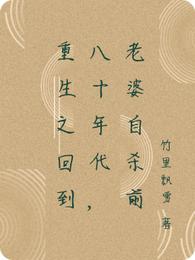 重生之回到
八十年代，
老婆自杀前
竹里飘雪 著